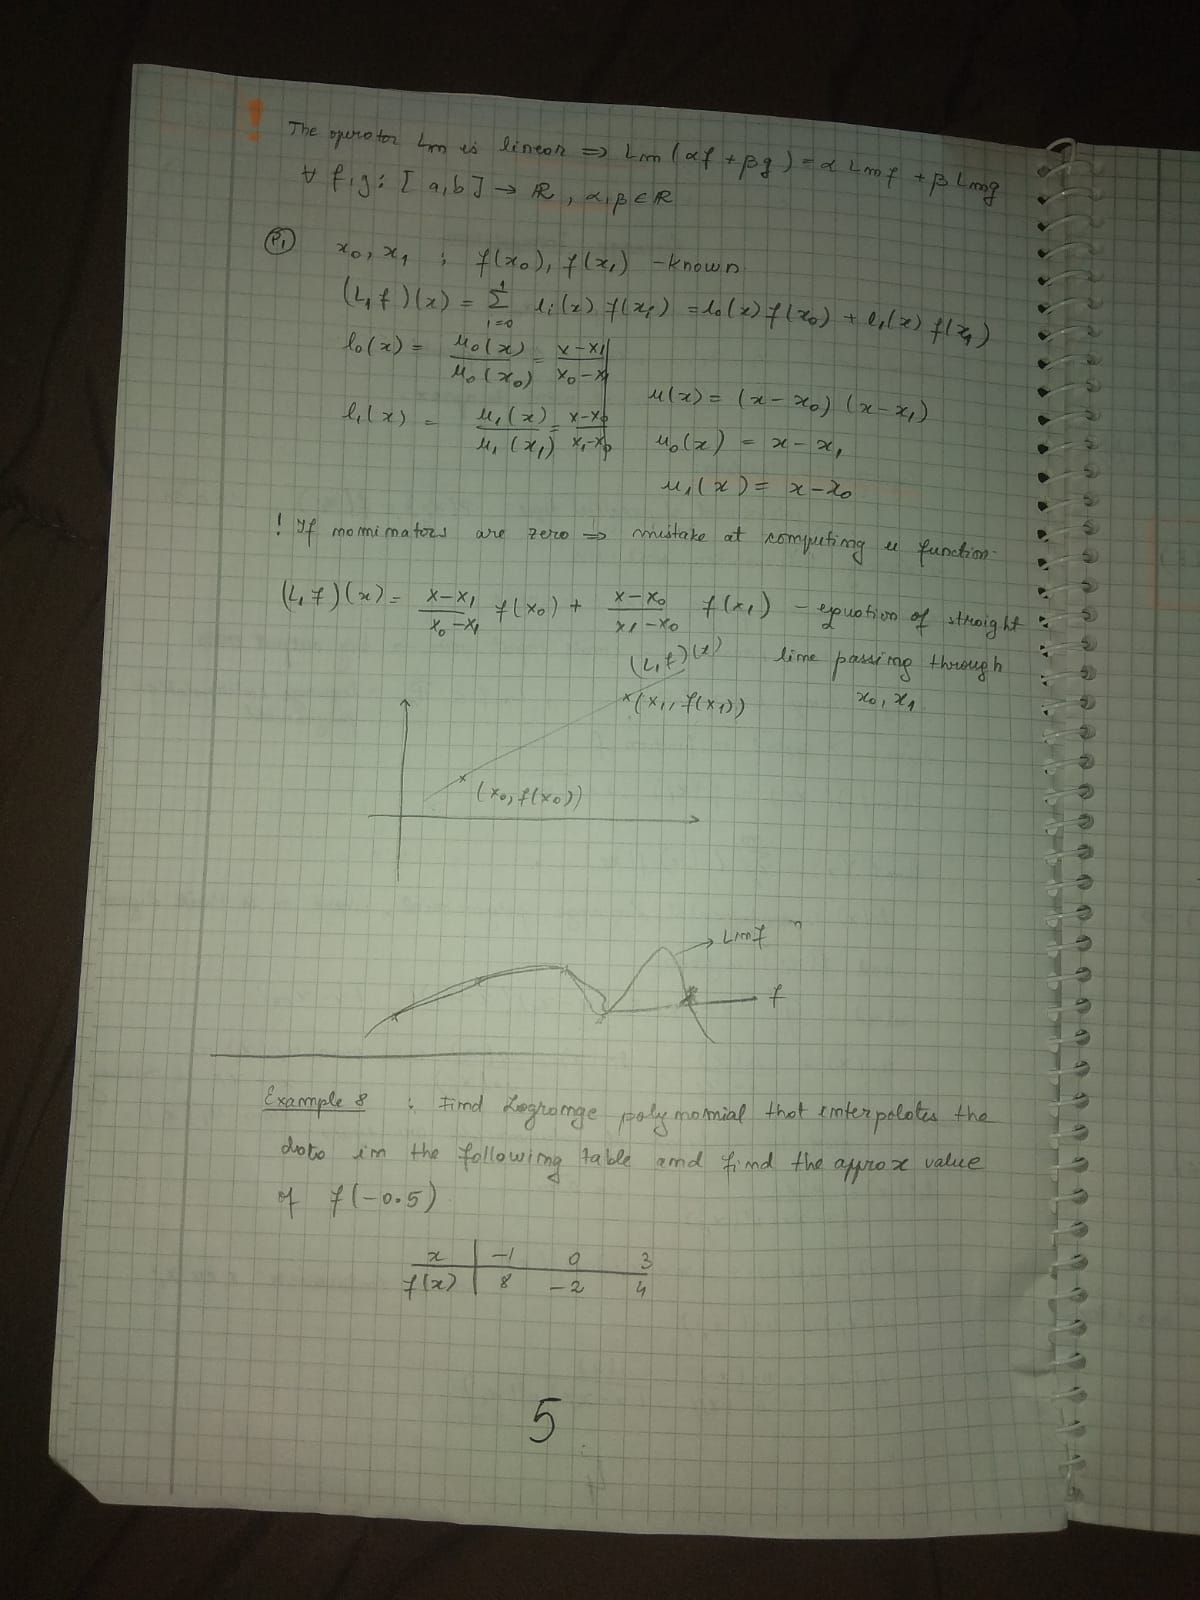 ! The operator Lm is linear => Lm(αf + βg) = α Lmf + β Lmg
∀ f,g: [a,b] → ℝ, α,β ∈ ℝ
P₁ x₀, x₁ ; f(x₀), f(x₁) - known
(L₁f)(x) = Σ¹ᵢ₌₀ lᵢ(x) f(xᵢ) = l₀(x) f(x₀) + l₁(x) f(x₁)
l₀(x) = u₀(x)/u₀(x₀) = x-x₁/x₀-x₁
u(x) = (x-x₀)(x-x₁)
l₁(x) = u₁(x)/u₁(x₁) = x-x₀/x₁-x₀
u₀(x) = x-x₁
u₁(x) = x-x₀
! If nominators are zero => mistake at computing u function.
(L₁f)(x) = x-x₁/x₀-x₁ f(x₀) + x-x₀/x₁-x₀ f(x₁) - equation of straight
line passing through
x₀, x₁
(L₁f)(x)
(x₁, f(x₁))
(x₀, f(x₀))
Lmf
f
Example 8 : Find Lagrange polynomial that interpolates the
data in the following table and find the approx value
of f(-0.5)
x | -1 0 3
f(x) | 8 -2 4
5